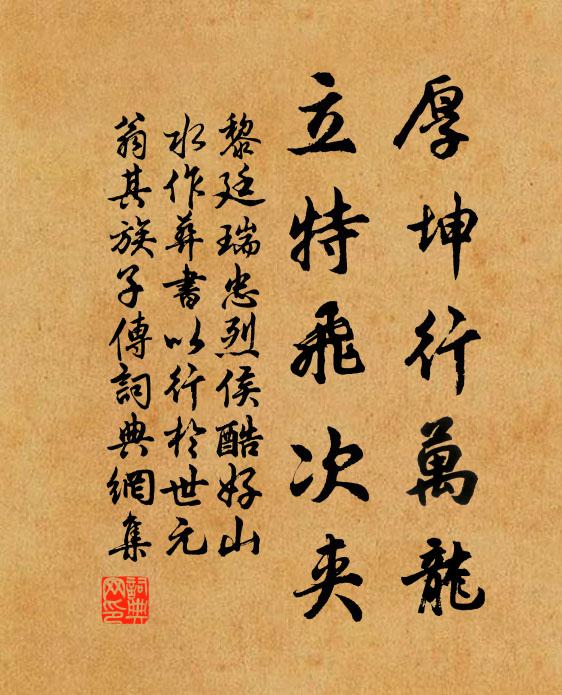 厚坤行萬龍
立特飛次夾
黎廷瑞忠烈侯酷好山
水作葬書以行於世元
翁其族子傳詞典網集
詞典網印